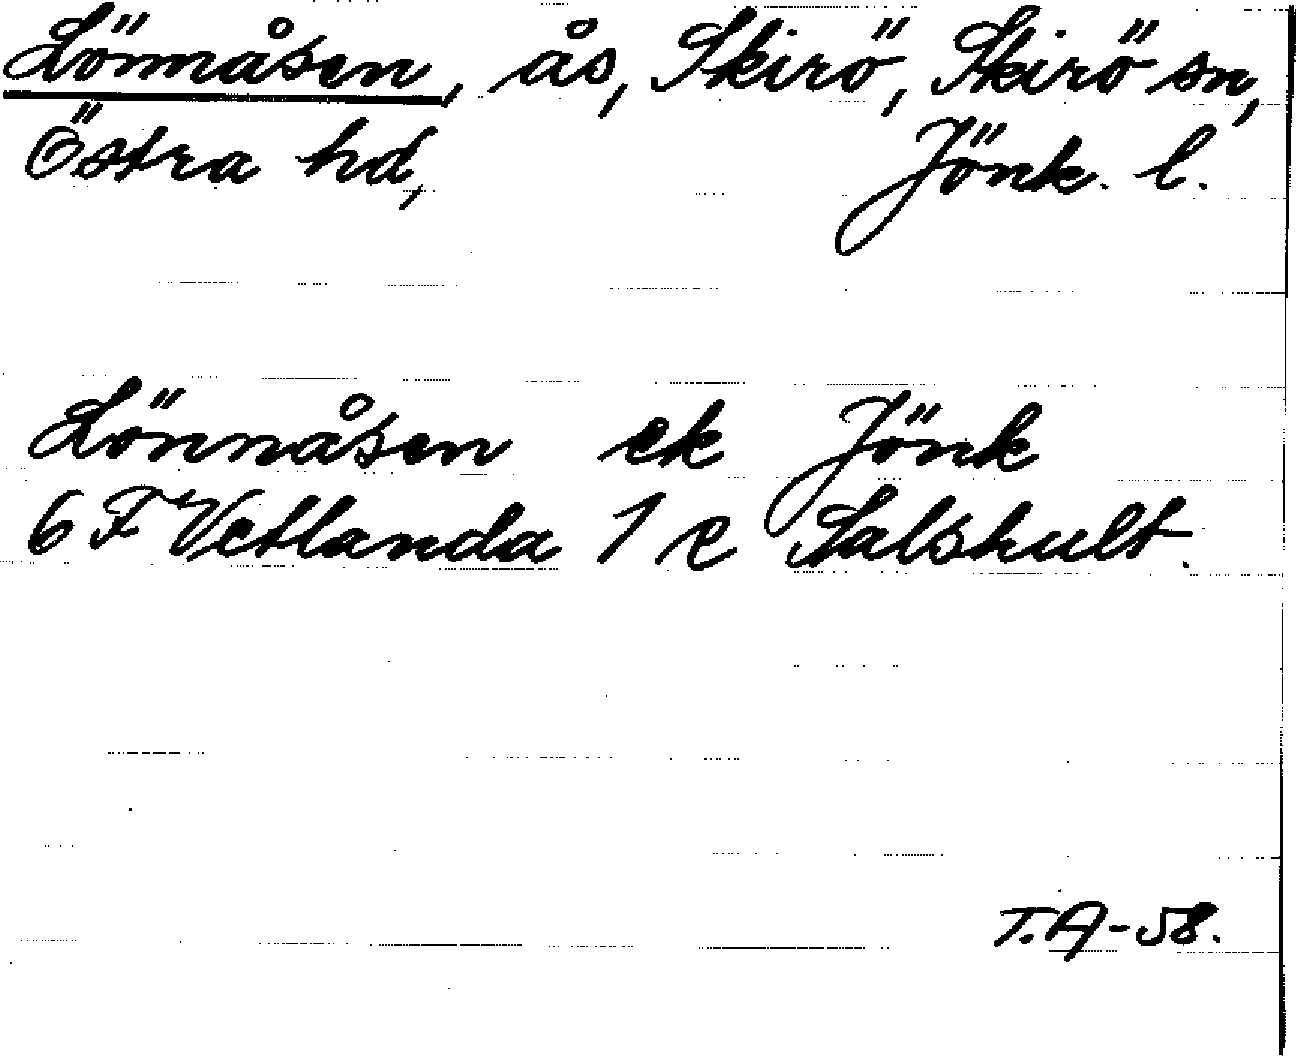 Lönnåsen, ås, Skirö, Skirö sn,
Östra hd, Jönk. l.
Lönnåsen ek Jönk
6 F Vetlanda 1 e Salshult.
T.A-58.